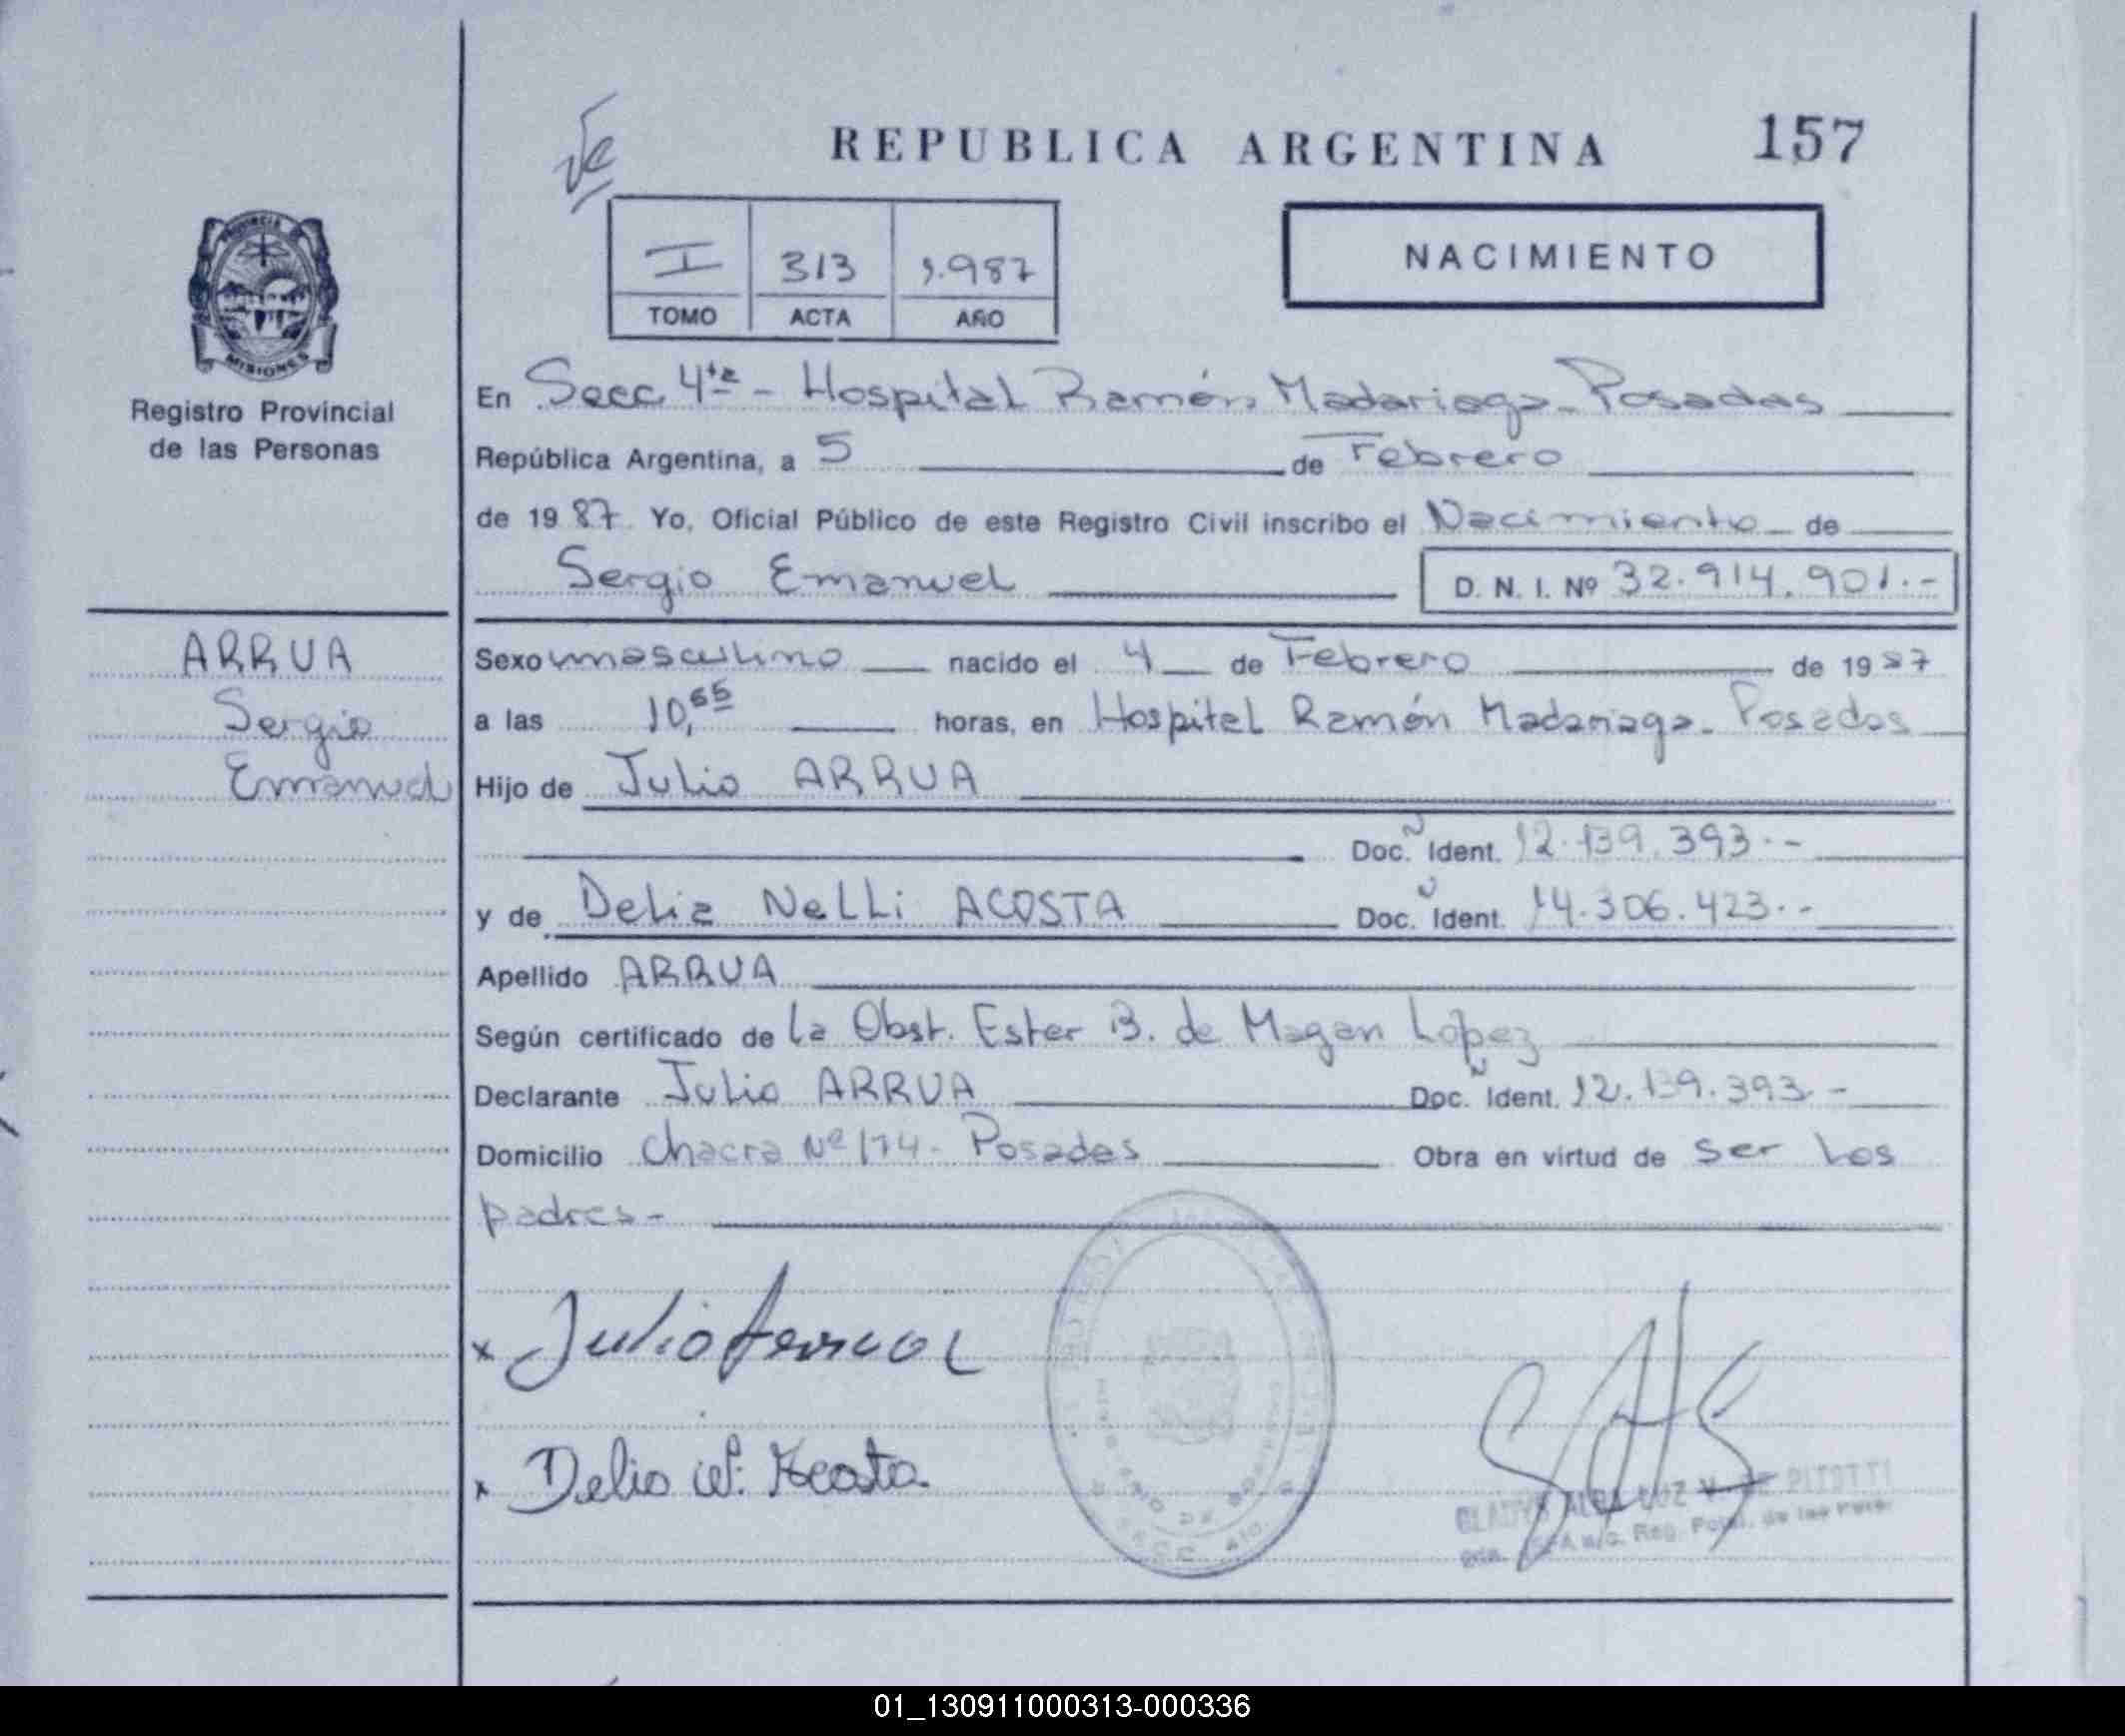 REPUBLICA ARGENTINA 157
I 313 1.987
TOMO ACTA AÑO
NACIMIENTO
PROVINCIA DE MISIONES
Registro Provincial
de las Personas
ARRUA
Sergio
Emanuel
En Secc 4ta - Hospital Ramón Madariaga - Posadas
República Argentina, a 5 de Febrero
de 1987 Yo, Oficial Público de este Registro Civil inscribo el Nacimiento de
Sergio Emanuel D. N. I. Nº 32.914.901.-
Sexo masculino nacido el 4 de Febrero de 1987
a las 10, horas, en Hospital Ramón Madariaga - Posadas
Hijo de Julio ARRUA
Doc. Ident. 12.139.393.-
y de Delia Nelli ACOSTA Doc. Ident. 14.306.423.-
Apellido ARRUA
Según certificado de La Obst. Ester B. de Magan Lopez
Declarante Julio ARRUA Doc. Ident. 12.139.393-
Domicilio Chacra Nº 174 - Posadas Obra en virtud de ser los
padres-
x Julio
x Delia N. Acosta
GLADYS ALBA LUZ V. DE PITOTTI
Reg. Pcial. de las Pers.
01_130911000313-000336